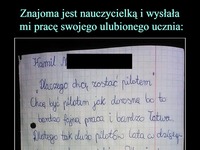 Znajoma jest nauczycielką i wysłała
mi pracę swojego ulubionego ucznia:
Kamil
"Dlaczego chcę zostać pilotem"
Chcę być pilotem jak dorosnę bo to
bardzo fajna praca i bardzo łatwa.
Dlatego tak dużo pilotów lata w dzisiej